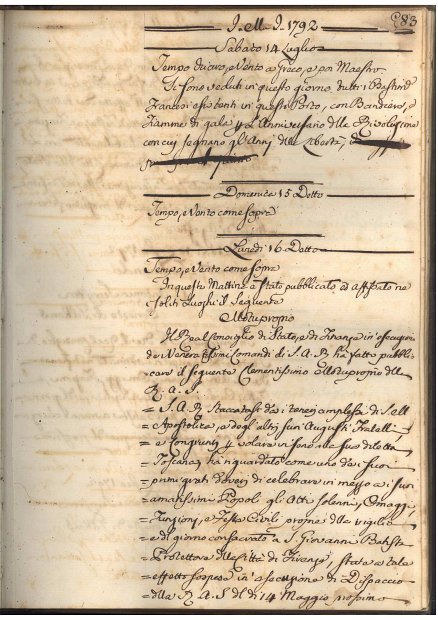 J. M. J. 1792
83
Sabato 14 Luglio
Tempo chiaro, e Vento a Greco, e poi Maestro
Si sono veduti in questo giorno tutti i Bastim.ti
Francesi esistenti in questo Porto, con Bandiere, e
Fiamme di gala p l'Anniversario della Rivoluzione
con cui segnano gl'Anni della Libertà,
Domenica 15 Detto
Tempo, e Vento come sopra
Lunedì 16 Detto
Tempo, e Vento come sopra
In questa Mattina è stato pubblicato ed affissato ne
soliti Luoghi il Seguente
Motuproprio
Il Real Consiglio di Stato, e di Finanze in esecuzione
dei Veneratissimi Comandi di S. A. R. ha fatto pubbli-
care il seguente Clementissimo Motuproprio della
R. A. S.
= S. A. R. Staccatasi dai teneri amplessi di S. M.
= Apostolica, e degl'altri suoi Augusti Fratelli,
= e Congiunti p volare in seno alla sua diletta
= Toscana, ha riguardato come uno dei suoi
= primi grati doveri di celebrare in mezzo ai suoi
= amatissimi Popoli gli Atti solenni, Omaggi,
= Funzioni, e Feste Civili proprie della vigilia
= e di giorno consacrato a S. Giovanni Batista
= Protettore della Città di Firenze, state a tale
= effetto sospese in esecuzione di Dispaccio
= della R. A. S. del dì 14 Maggio prossimo